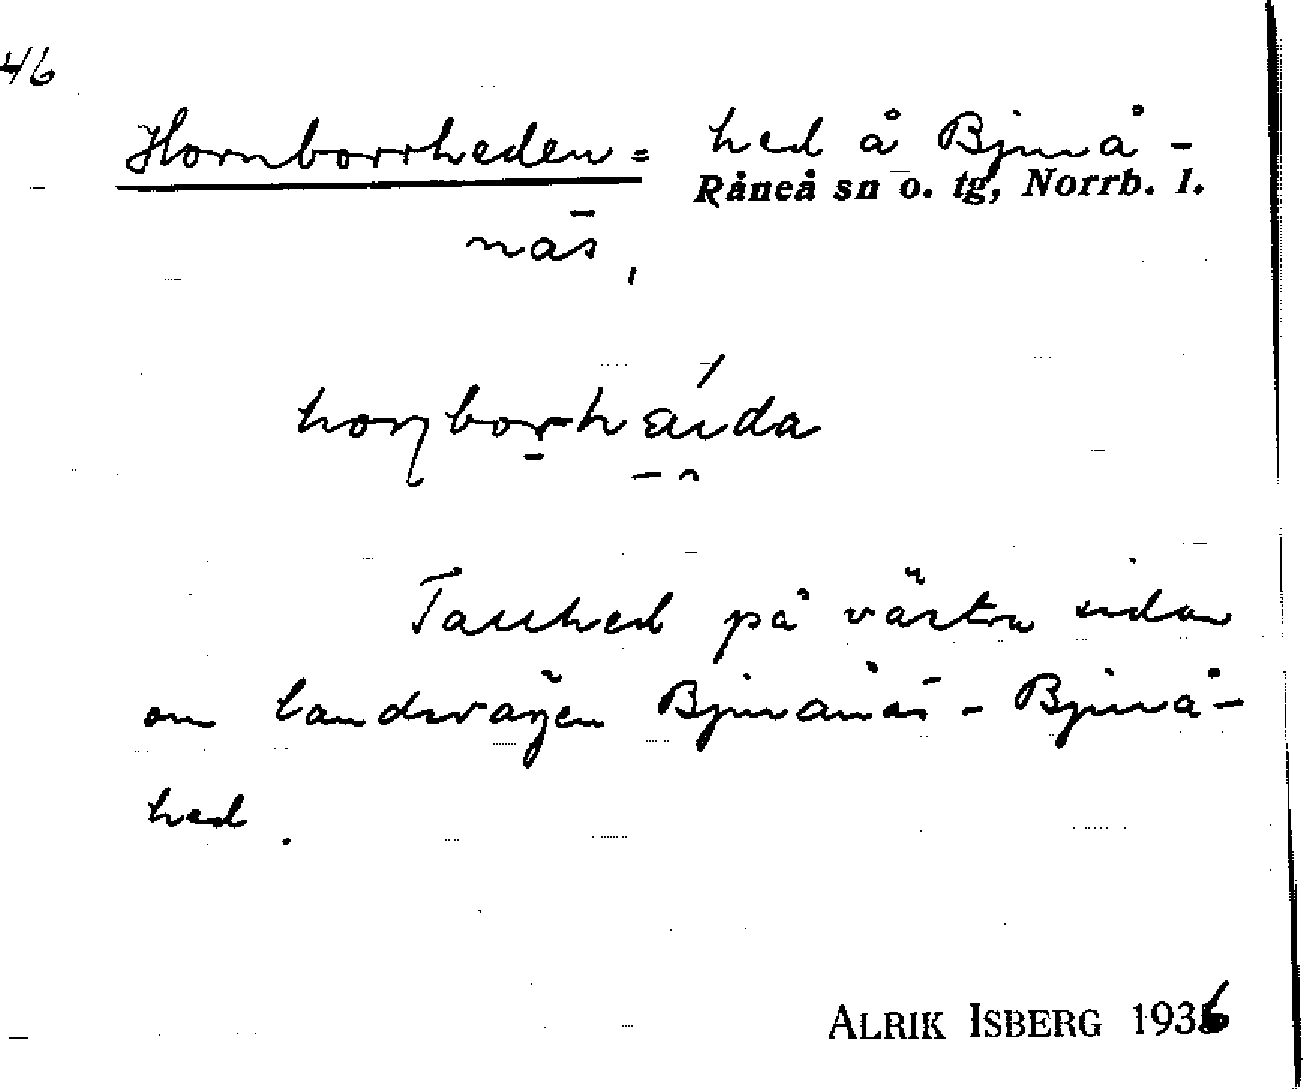 46
Hornborrheden = hed å Bjurå-
Råneå sn o. tg, Norrb. l.
näs,
hoɳborhaida
Tallhed på västra sidan
om landsvägen Bjuranäs - Bjurå-
hed.
ALRIK ISBERG 1936